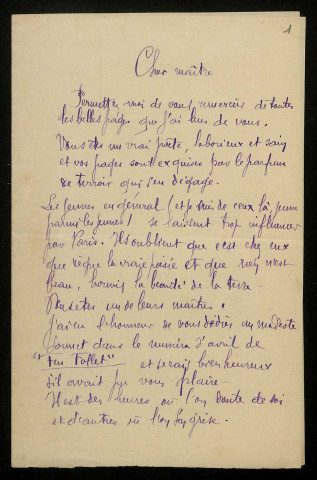 1
Cher maître
Permettez moi de vous remercier de toutes
les belles pages que j'ai lues de vous.
Vous êtes un vrai poète, laborieux et sain
et vos pages sont exquises par le parfum
de terroir qui s'en dégage.
Les jeunes en général (et je suis de ceux là, jeune
parmi les jeunes) se laissent trop influencer
par Paris. Ils oublient que c'est chez eux
que règne la vraie poésie et que rien n'est
beau, hormis la beauté de la terre.
Vous êtes un de leurs maîtres.
J'ai eu l'honneur de vous dédier un modeste
sonnet dans le numéro d'avril de
"Feu Follet" et serais bien heureux
s'il avait pu vous plaire.
Il est des heures où l'on doute de soi
et d'autres où l'on se grise.